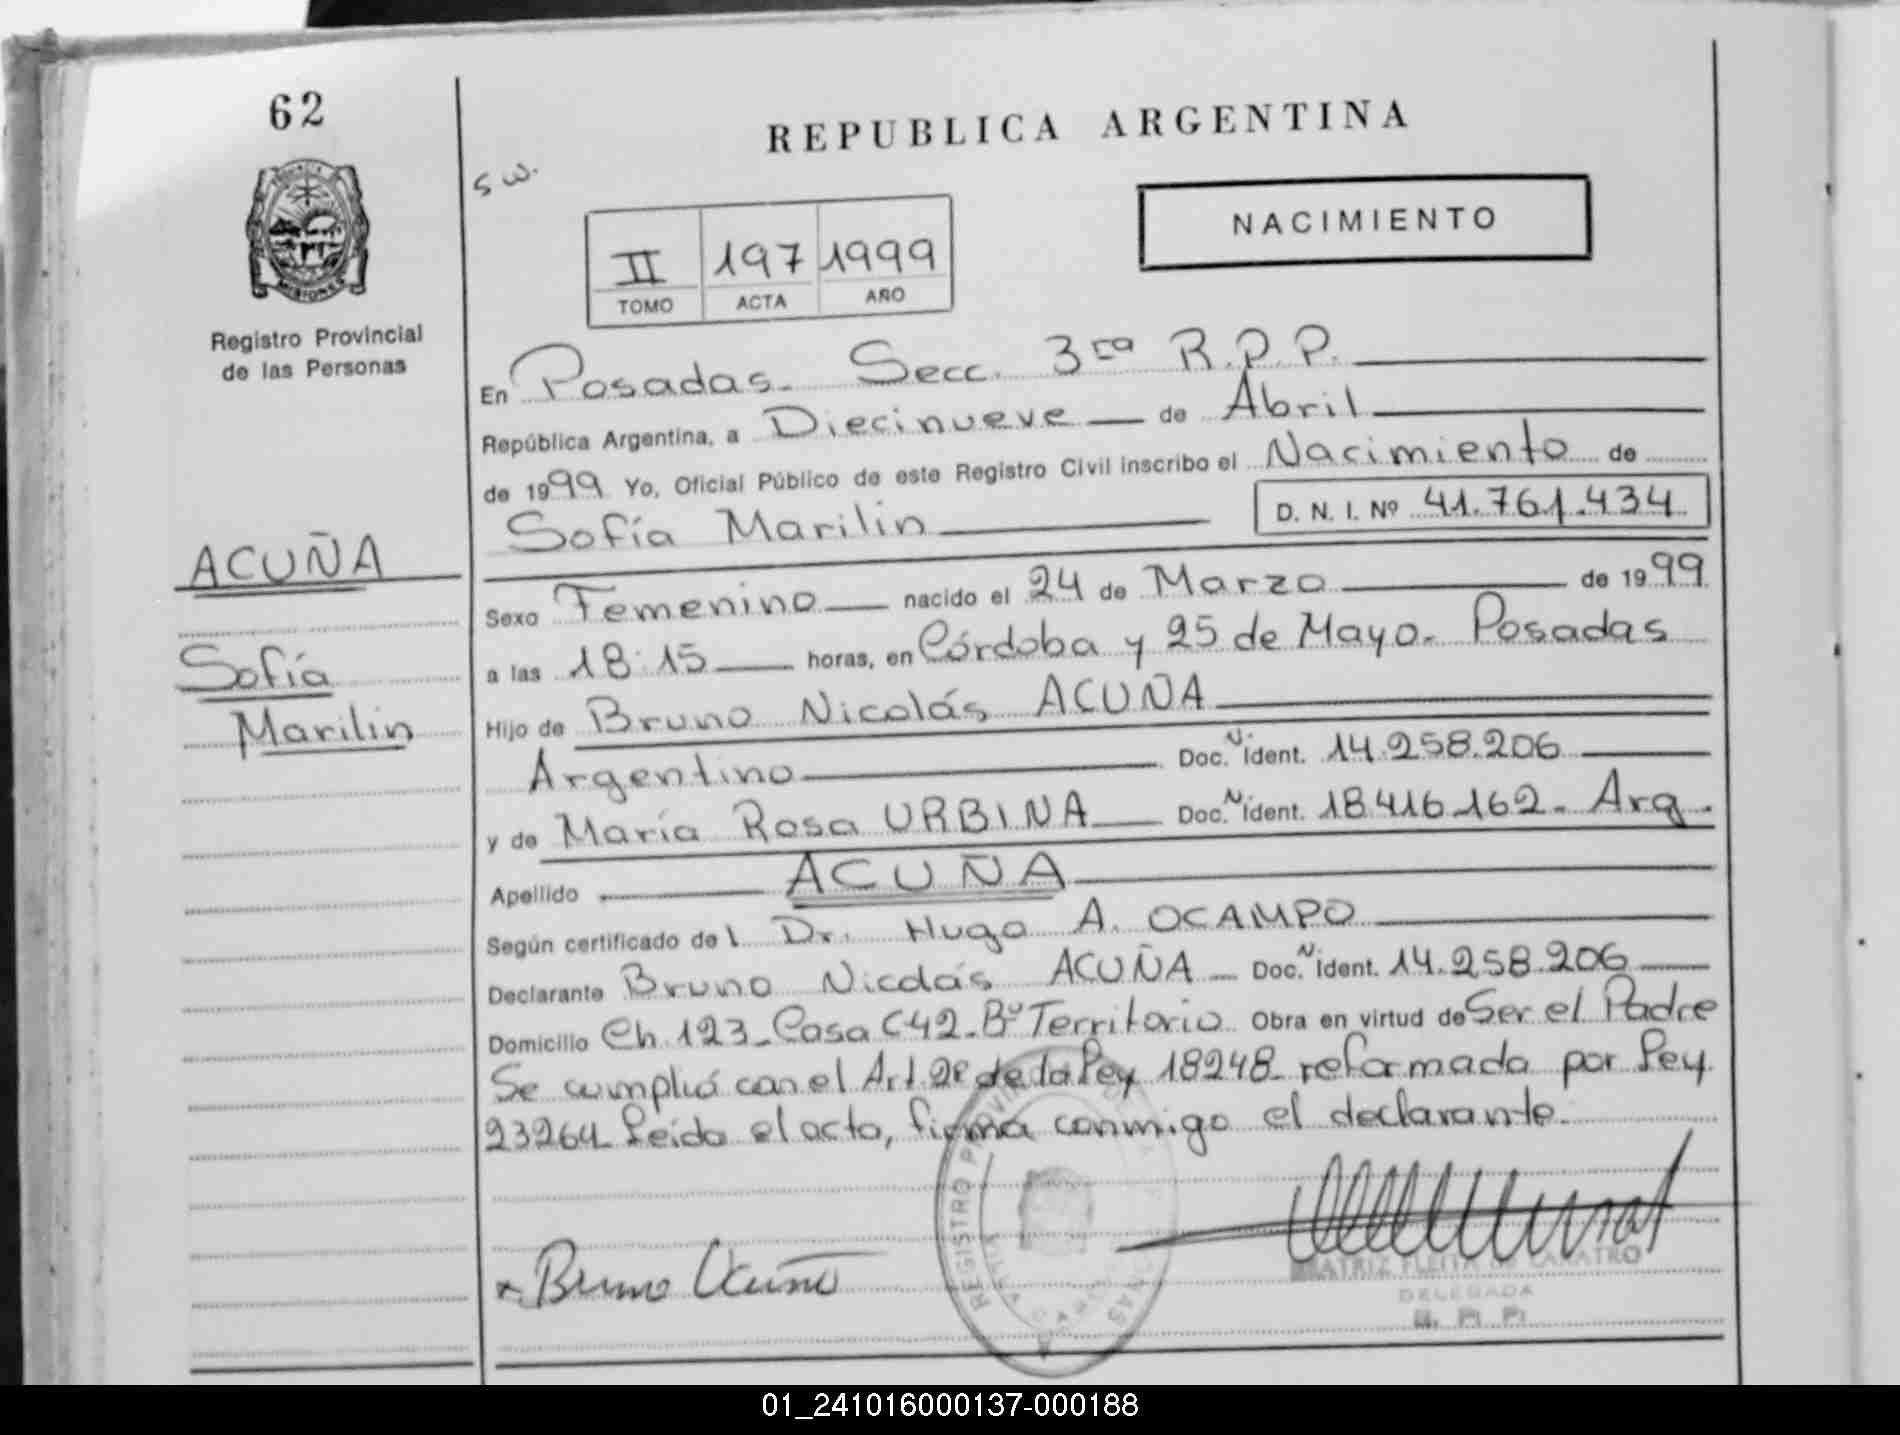 62
REPUBLICA ARGENTINA
s w.
NACIMIENTO
II 197 1999
TOMO ACTA AÑO
MISIONES
Registro Provincial
de las Personas
En Posadas. Secc. 3ra R.P.P.
República Argentina, a Diecinueve de Abril
de 1999 Yo, Oficial Público de este Registro Civil inscribo el Nacimiento de
Sofía Marilin D. N. I. Nº 41.761.434
ACUÑA
Sofía
Marilin
Sexo Femenino nacido el 24 de Marzo de 1999
a las 18:15 horas, en Córdoba y 25 de Mayo. Posadas
Hijo de Bruno Nicolás ACUÑA
Argentino Doc. N. ident. 14.258.206
y de María Rosa URBINA Doc. N. ident. 18.416.162. Arg.
Apellido ACUÑA
Según certificado del Dr. Hugo A. OCAMPO
Declarante Bruno Nicolás ACUÑA Doc. N. ident. 14.258.206
Domicilio Ch 123 - Casa C42 - Bº Territorio Obra en virtud de Ser el Padre
Se cumplió con el Art 2º de la Ley 18248 reformada por Ley
23264 Leída el acta, firma conmigo el declarante.
Bruno Acuña
REGISTRO PROVINCIAL DE LAS PERSONAS
DELEGADA
R. P. P.
01_241016000137-000188